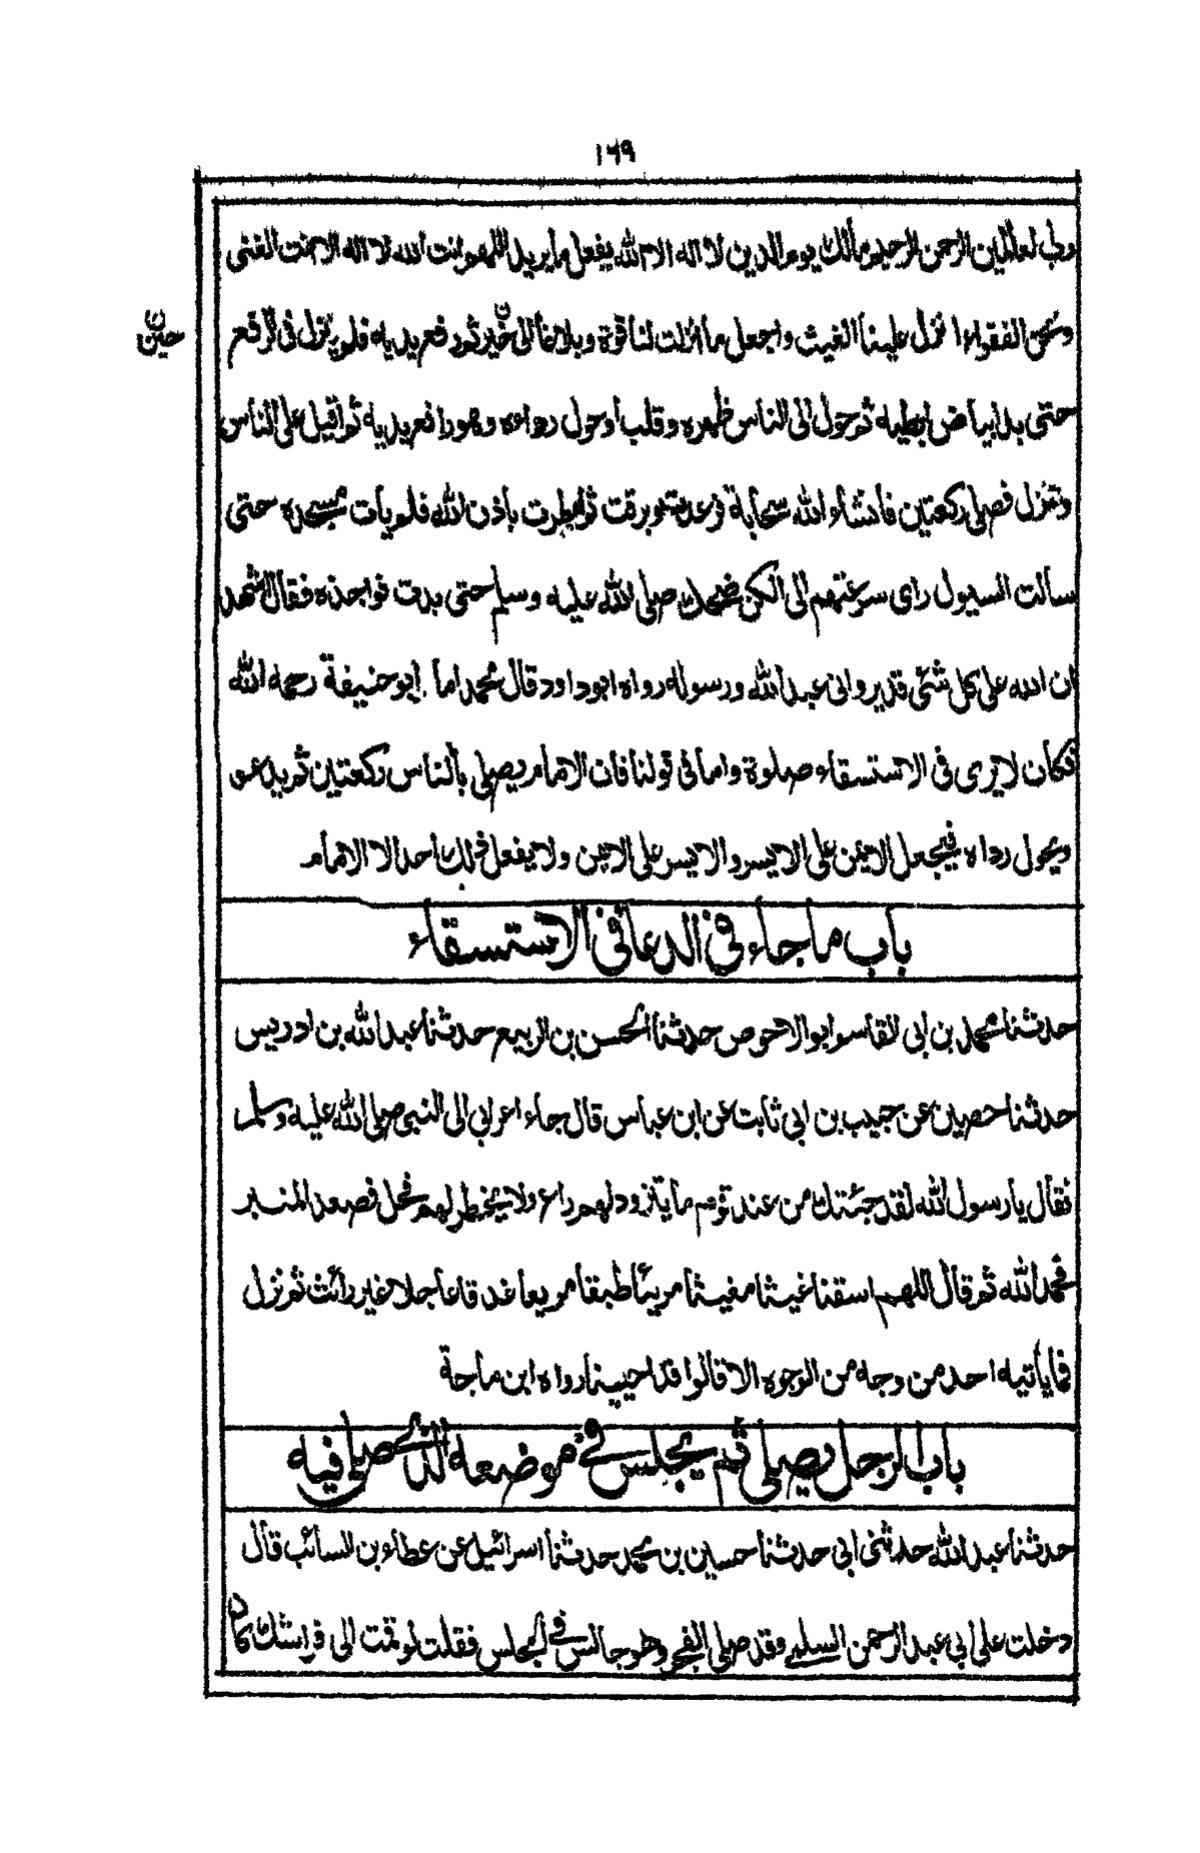 ١٦٩
ورب العالمين الرحمن الرحيم مالك يوم الدين لا اله الا الله يفعل ما يريد اللهم انت الله لا اله الا انت الغنى
ونحن الفقراء انزل علينا الغيث واجعل ما انزلت لنا قوة وبلاغا الى خير ثم رفع يديه فلم يزل فى الرفع
حين
حتى بدا بياض ابطيه ثم حول الى الناس ظهره وقلب او حول رداءه وهو رافع يديه ثم اقبل على الناس
ونزل فصلى ركعتين فانشاء الله سحابة فرعدت وبرقت ثم امطرت باذن الله فلم يأت مسجده حتى
سالت السيول راى سرعتهم الى الكن ضحك صلى الله عليه وسلم حتى بدت نواجذه فقال اشهد
ان الله على كل شئى قدير وانى عبد الله ورسوله رواه ابوداود قال محمد اما ابو حنيفة رحمه الله
فكان لا يرى فى الاستسقاء صلوة واما فى قولنا فان الامام يصلى بالناس ركعتين ثم يدعو
ويحول رداه فيجعل الايمن على الايسر والايسر على الايمن ولا يفعل ذلك احد الا الامام
باب ما جاء فى الدعا فى الاستسقاء
حدثنا محمد بن ابى القاسم ابو الاحوص حدثنا الحسن بن الربيع حدثنا عبد الله بن ادريس
حدثنا حصين عن حبيب بن ابى ثابت عن ابن عباس قال جاء اعرابى الى النبى صلى الله عليه وسلم
فقال يا رسول الله لقد جئتك من عند قوم ما يتزود لهم راع ولا يخطر لهم فحل فصعد المنبر
فحمد الله ثم قال اللهم اسقنا غيثا مغيثا مريئا طبقا مريعا غدقا عاجلا غير رائث ثم نزل
فما يأتيه احد من وجه من الوجوه الا قالوا قد احيينا رواه ابن ماجة
باب الرجل يصلى ثم يجلس فى موضعه الذى صلى فيه
حدثنا عبد الله حدثنى ابى حدثنا حسين بن محمد حدثنا اسرائيل عن عطاء بن السائب قال
دخلت على ابى عبد الرحمن السلمى وقد صلى الفجر وهو جالس فى المجلس فقلت لو قمت الى فراشك كان